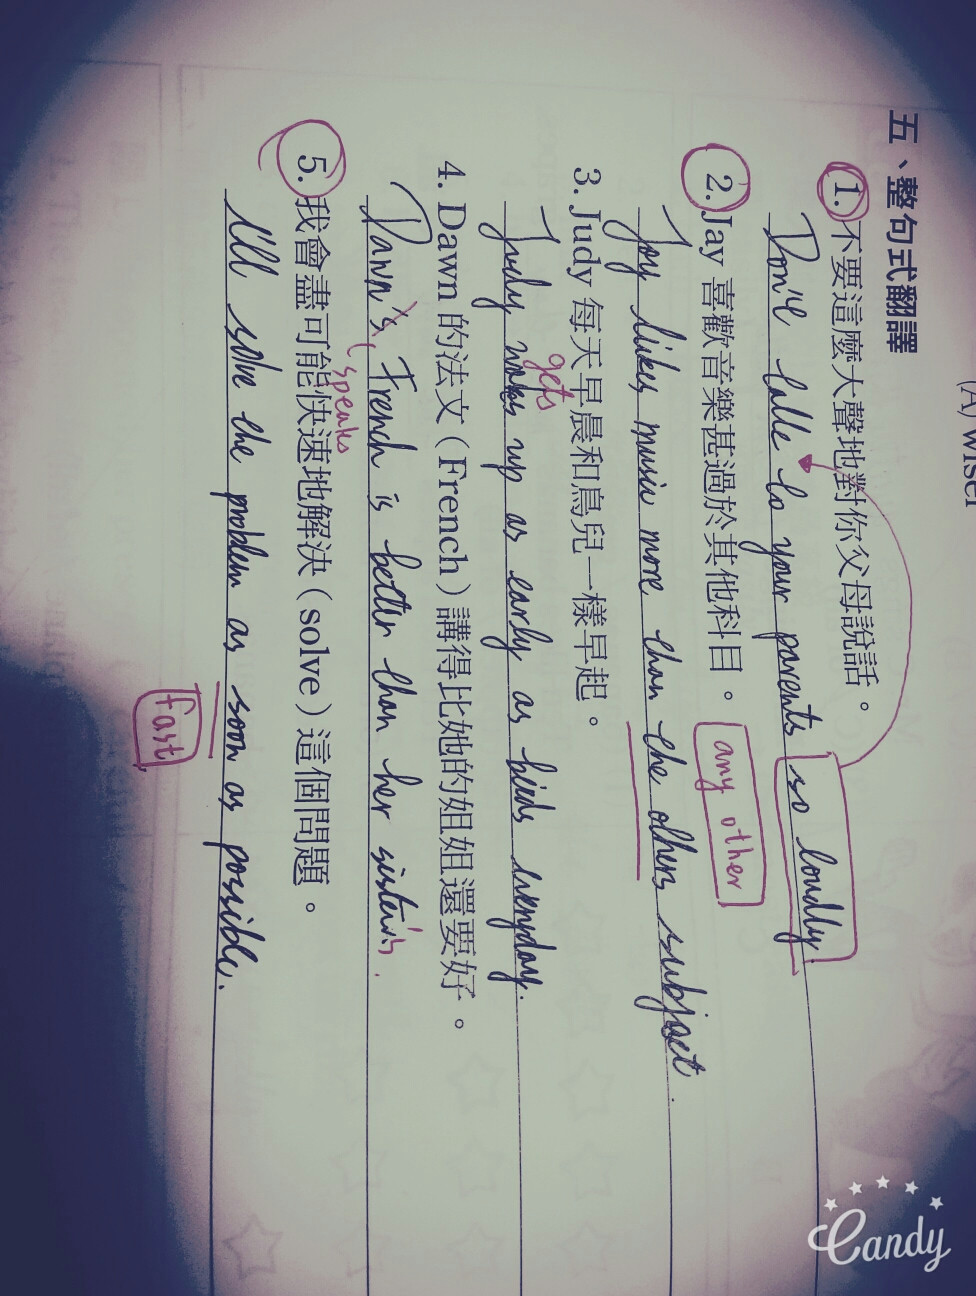 (A) wiser
五、整句式翻譯
1. 不要這麼大聲地對你父母說話。
Don't talk to your parents so loudly.
2. Jay 喜歡音樂甚過於其他科目。
any other
Jay likes music more than the others subject.
3. Judy 每天早晨和鳥兒一樣早起。
gets
Judy wakes up as early as birds everyday.
4. Dawn 的法文（French）講得比她的姐姐還要好。
Dawn's French is better than her sister's.
speaks
5. 我會盡可能快速地解決（solve）這個問題。
I'll solve the problem as soon as possible.
fast
Candy